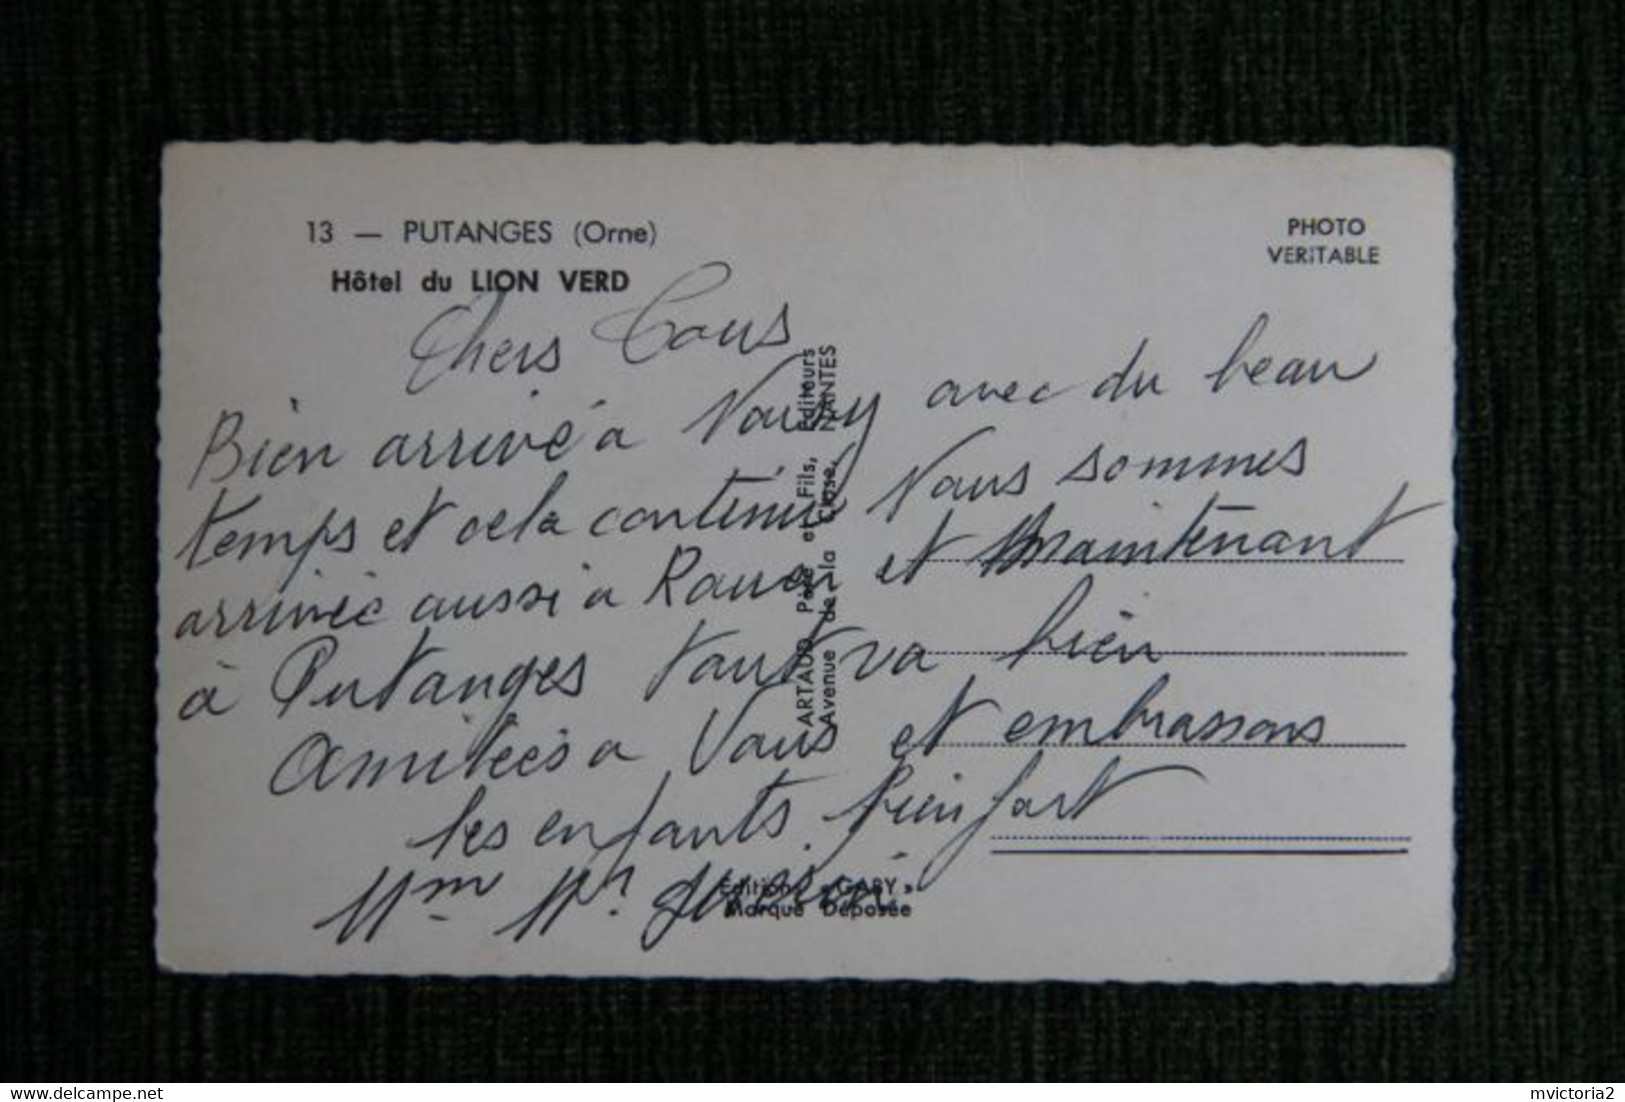 13 — PUTANGES (Orne)
Hôtel du LION VERD
PHOTO
VERITABLE
Chers Tous
Bien arrivé à avec du beau
temps et cela continu Nous sommes
arrivée aussi a Rouen et Maintenant
à Putanges tout va bien
Amitées a Vous et embrassons
les enfants bien fort
Mm Mr
ARTAUD Père et Fils, Editeurs
Avenue de la Close, NANTES
Editions « GABY »
Marque Déposée
mvictoria2
https://www.delcampe.net